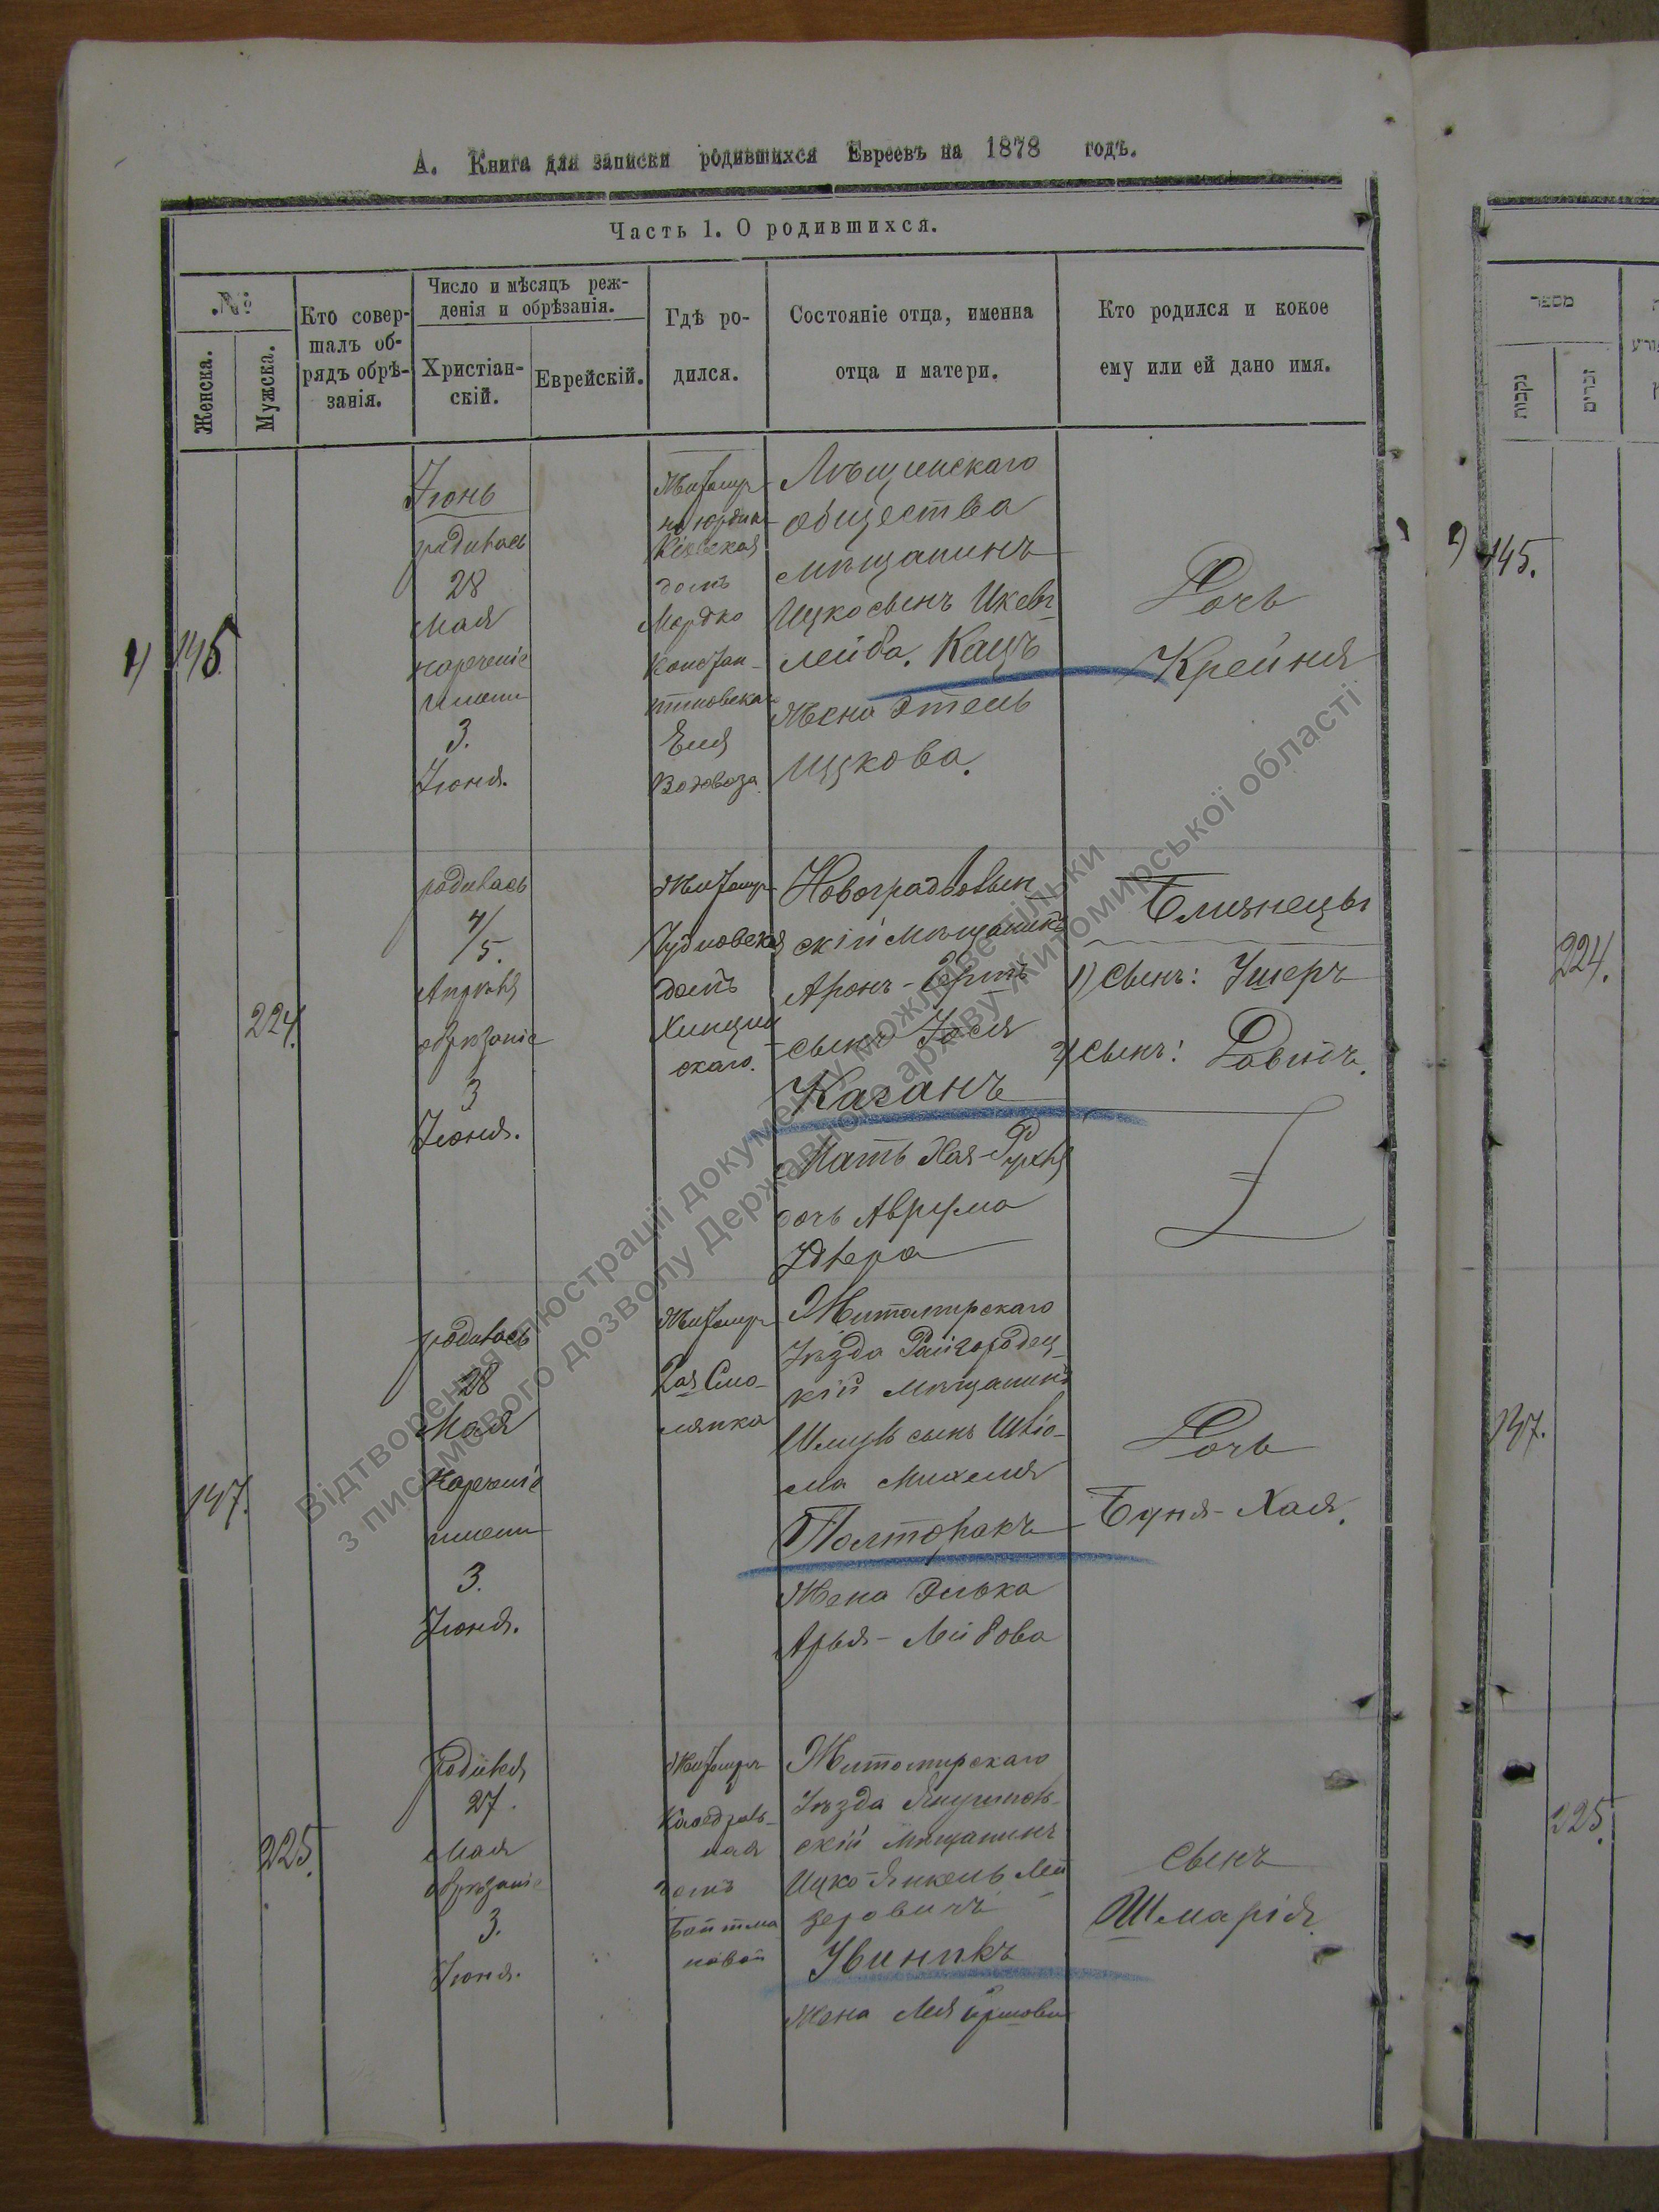 А. Книга для записки родившихся Евреевъ на 1878 годъ.
Часть 1. О родившихся.
№
Женска.
Мужска.
Кто совер-
шалъ об-
рядъ обрѣ-
занія.
Число и мѣсяцъ реж-
денія и обрѣзанія.
Христіан-
скій.
Еврейскій.
Гдѣ ро-
дился.
Состояніе отца, именна
отца и матери.
Кто родился и кокое
ему или ей дано имя.
145
Іюнь
родилась
28
Мая
нареченіе
имени
3.
Іюня.
Житомир
Кіевская
домъ
Мордко
Констан-
тиновска
Еля
Водовоза.
общества
мѣщанинъ
Ицко сынъ
Лейба. Кацъ
Жена Этель
Ицкова.
Дочь
Крейня
224.
родилась
4/5.
обрѣзаніе
3
Іюня.
Житомир
Чудновская
домъ
скаго.
Новоградволын
скій мѣщанинъ
Аронъ-Герш
сынъ Іося
Каганъ
Мать Хая-Рухля
дочь Аврума
Близнецы
1) Сынъ: Ушеръ
2) Сынъ: Довидъ.
147.
родилась
28
Мая
Нареченіе
имени
3.
Іюня.
Житомир
2ая Смо-
лянка
Житомирскаго
Уѣзда Райгородец-
кій Мѣщанинъ
Шмуль сынъ Шліо-
ма Михеля
Полторакъ
Жена Элька
Арья-Лейбова
Дочь
Буня-Хая.
225.
Родился
27.
Мая
обрѣзаніе
3.
Іюня.
Житомир
Кафедраль-
ная
домъ
новой
Житомирскаго
Уѣзда
скій Мѣщанинъ
Ицко-Янкель Лей
зеровичъ
Жена Лея Гершова
Сынъ
Шмарія.
מספר
נקבות
זכרים
145.
224.
147.
225.
Відтворення ілюстрації документу можливе тільки
з письмового дозволу Державного архіву Житомирської області